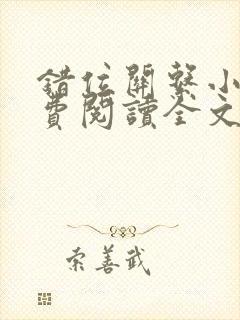 錯位關系小
費閱讀全文
索善武